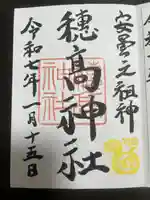 安曇之祖神
穂髙神社
令和七年一月十五日